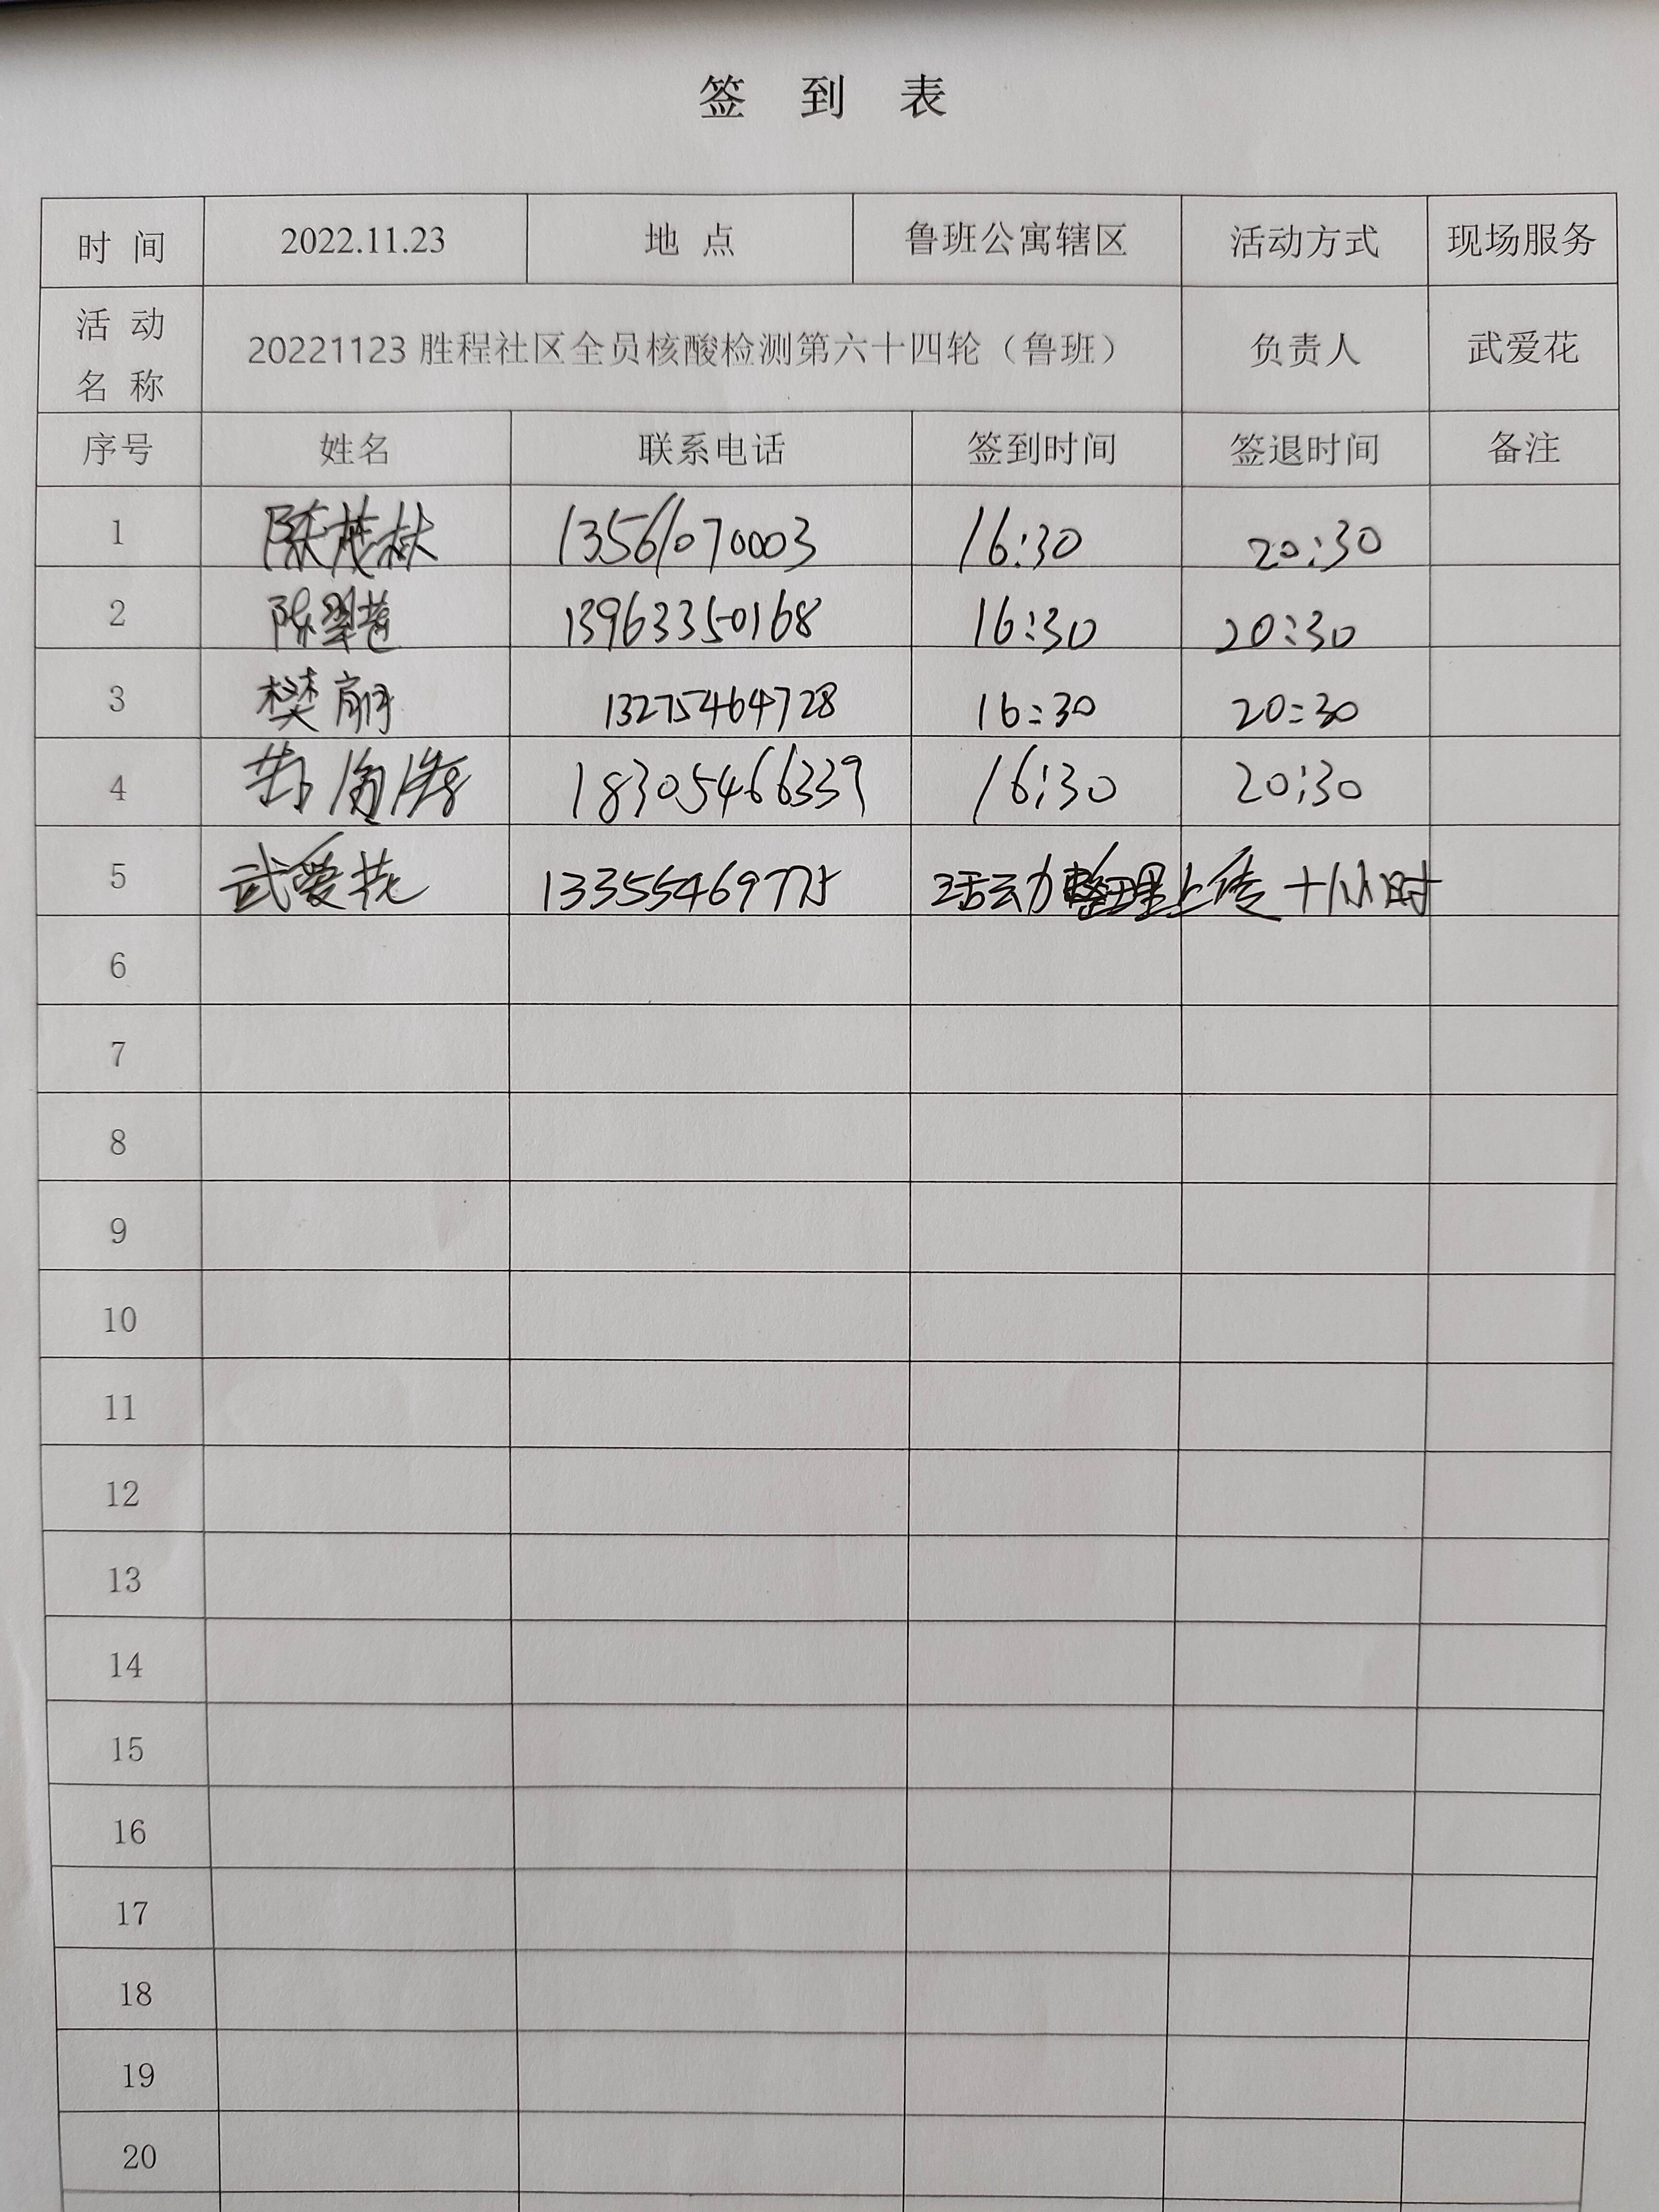 签 到 表
时 间 2022.11.23 地 点 鲁班公寓辖区 活动方式 现场服务
活 动 名 称 20221123 胜程社区全员核酸检测第六十四轮（鲁班） 负责人 武爱花
序号 姓名 联系电话 签到时间 签退时间 备注
1 陈茂林 13561070003 16:30 20:30
2 陈翠苍 13963350168 16:30 20:30
3 樊丽 13275464728 16:30 20:30
4 18305466339 16:30 20:30
5 武爱花 活动整理上传十小时
6
7
8
9
10
11
12
13
14
15
16
17
18
19
20